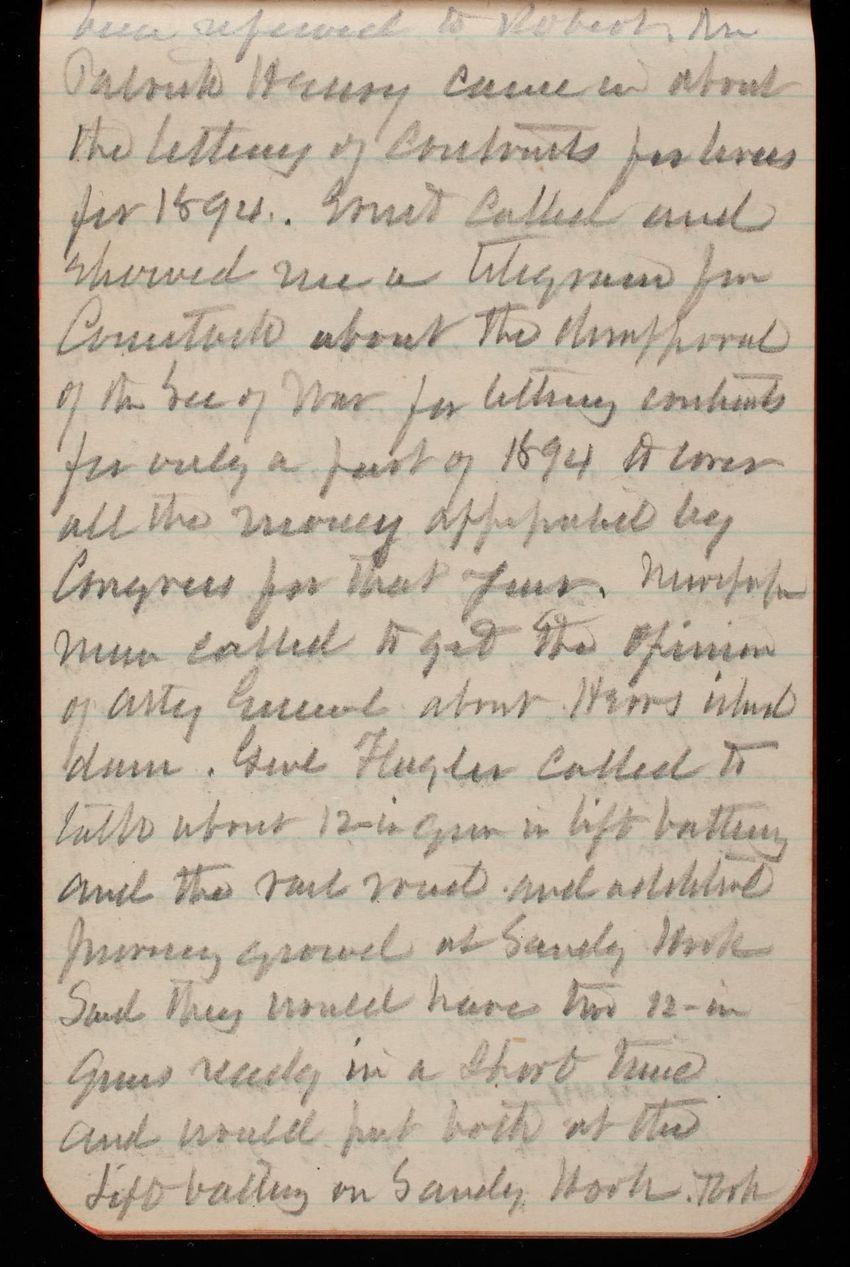 been referred to Robert. Mr
Patrick Henry came in about
the letting of Contracts for levees
for 1894. Ernst Called and
showed me a telegram from
Comstock about the disapproval
of the Sec of War for letting contracts
for only a part of 1894 to cover
all the money appropriated by
Congress for that year. Newspaper
men called to get the opinion
of Atty General about Hares island
dam. Genl Flagler called to
talk about 12-in gun in lift battery
and the rail road and additional
proving ground at Sandy Hook
Said they would have two 12-in
Guns ready in a short time
and would put both at the
Lift battery on Sandy Hook.